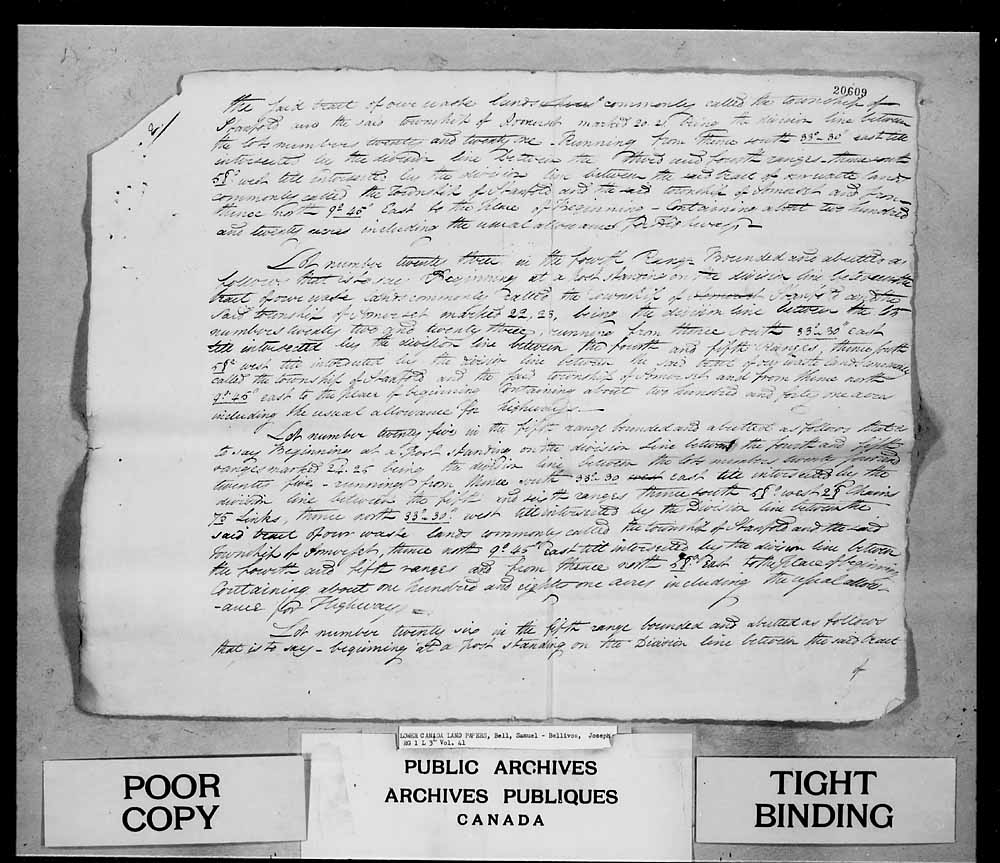 20609
2/
the said tract of our waste lands commonly called the township of
Stanfold and the said township of Somerset marked 20.21 being the division line between
the lots numbers twenty and twenty one. Running from thence south 33°-30' east till
intersected by the division line between the third and fourth ranges - thence south
58° west till intersected by the division line between the said tract of our waste lands
commonly called the township of Stanfold and the said township of Somerset and from
thence north 9°-45' East to the place of Beginning - Containing about two hundred
and twenty acres including the usual allowance for Highways -
Lot number twenty three in the fourth Range Bounded and abutted as
follows that is to say Beginning at a Post standing on the division line between the
tract of our waste lands commonly called the township of Somerset Stanfold and the
said township of Somerset marked 22, 23, being the division line between the lots
numbers twenty two and twenty three, running from thence south 33°-30' east
till intersected by the division line between the fourth and fifth Ranges, thence south
58° west till intersected by the division line between the said tract of our waste lands commonly
called the township of Stanfold and the said township of Somerset and from thence north
9°-45' east to the place of beginning Containing about two hundred and forty one acres
including the usual allowance for highways -
Lot number twenty five in the fifth range bounded and abutted as follows that is
to say Beginning at a Post standing on the division line between the fourth and fifth
ranges marked 24.25 being the division line between the lots number twenty four and
twenty five - running from thence south 33°-30' west east till intersected by the
division line between the fifth and sixth ranges thence south 58° west 29 Chains
75 Links, thence north 33°-30' west till intersected by the Division line between the
said tract of our waste lands commonly called the township of Stanfold and the said
Township of Somerset, thence north 9°-45' East till intersected by the division line between
the fourth and fifth ranges and from thence north 58° East to the place of beginning
Containing about one hundred and eighty one acres including the usual allow-
-ance for Highways -
Lot number twenty six in the fifth range bounded and abutted as follows
that is to say - beginning at a Post standing on the Division line between the said tract
of
LOWER CANADA LAND PAPERS, Bell, Samuel - Bellivos, Joseph
RG 1 L 3 Vol. 41
POOR
COPY
PUBLIC ARCHIVES
ARCHIVES PUBLIQUES
CANADA
TIGHT
BINDING